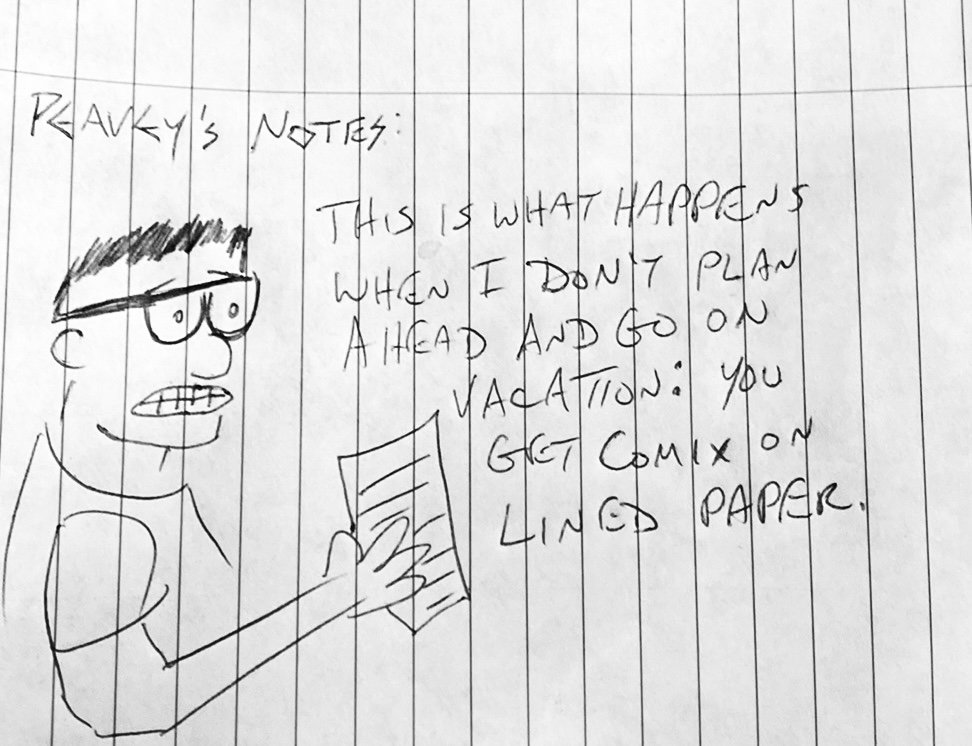 PEAVEY'S NOTES:
THIS IS WHAT HAPPENS
WHEN I DON'T PLAN
AHEAD AND GO ON
VACATION: YOU
GET COMIX ON
LINED PAPER.